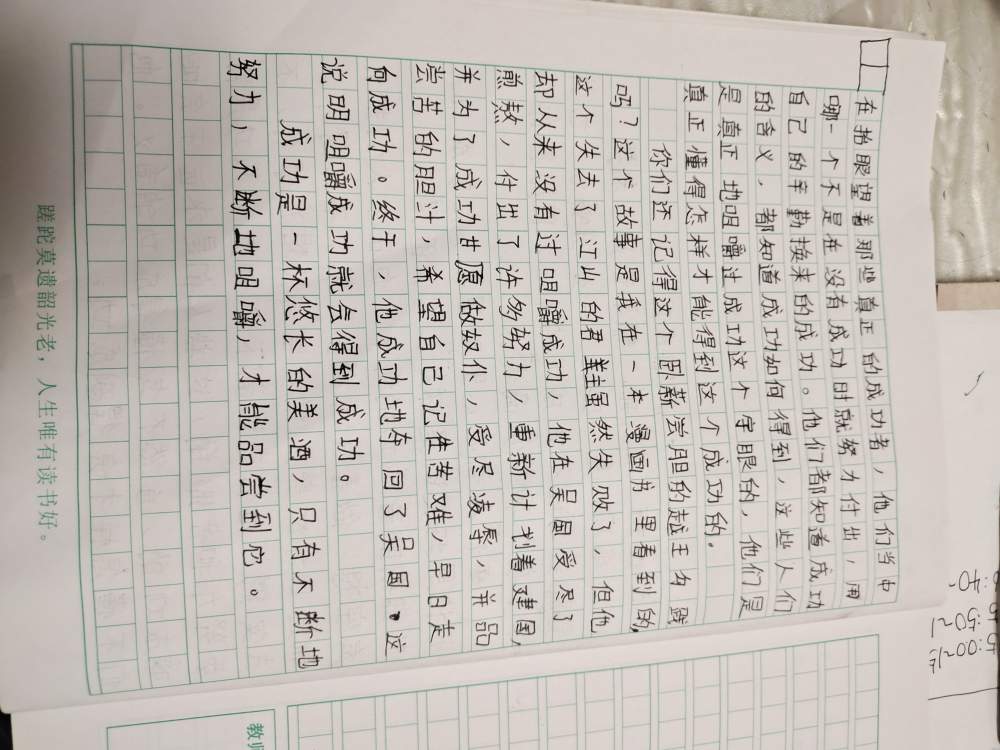 在抬眼望着那些真正的成功者，他们当中
哪一个不是在没有成功时就努力付出，用
自己的辛勤换来的成功。他们都知道成功
的含义，都知道成功如何得到，这些人们
是真正地咀嚼过成功这个字眼的，他们是
真正懂得怎样才能得到这个成功的。
你们还记得这个卧薪尝胆的越王勾践
吗？这个故事是我在一本漫画书里看到的，
这个失去了江山的君主虽然失败了，但他
却从来没有过咀嚼成功，他在吴国受尽了
煎熬，付出了许多努力，重新计划着建国，
并为了成功甘愿做奴仆，受尽凌辱，并品
尝苦的胆汁，希望自己记住苦难，早日走
向成功。终于，他成功地夺回了吴国。这
说明咀嚼成功就会得到成功。
成功是一杯悠长的美酒，只有不断地
努力，不断地咀嚼，才能品尝到它。
蹉跎莫遗韶光老，人生唯有读书好。
教师